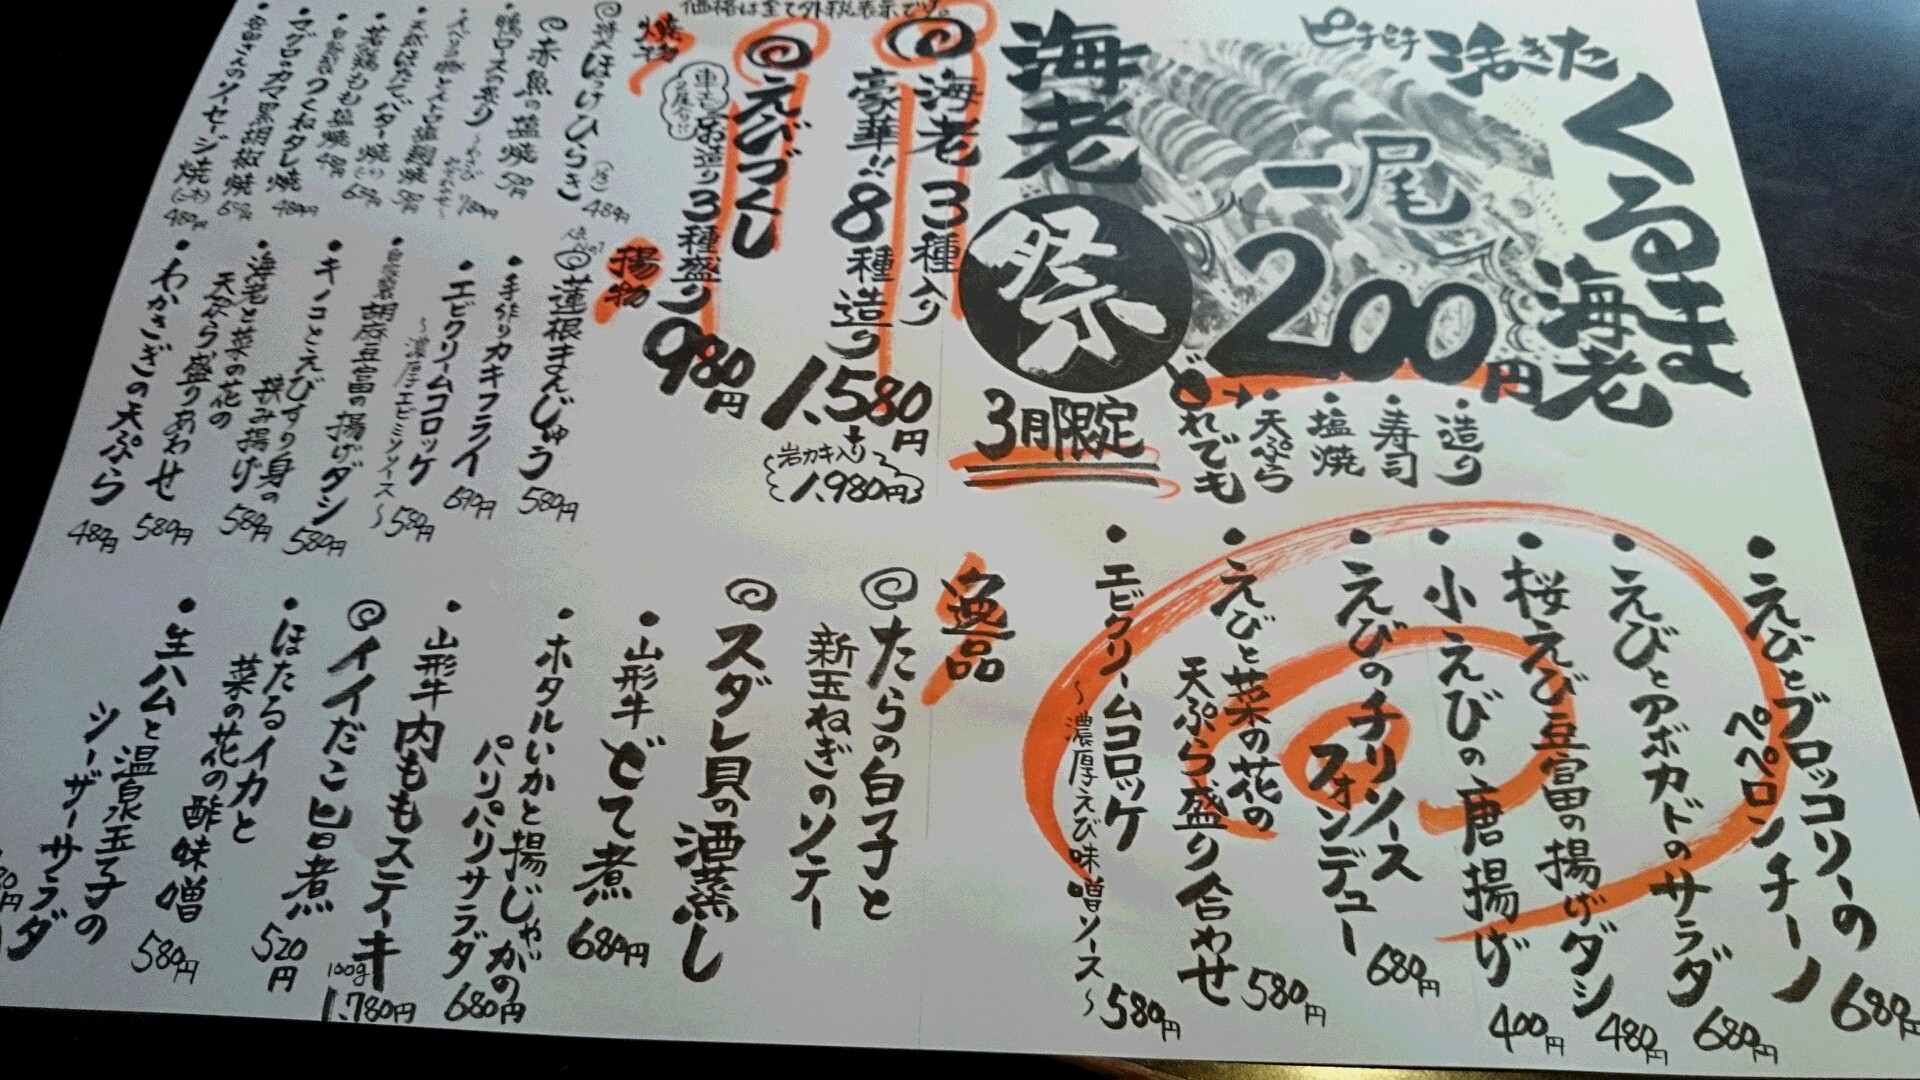 価格は全て外税表示です。
ピチピチ 活きた
くるま
海老
一尾
200円
どれでも
・造り
・寿司
・塩焼
・天ぷら
海老
祭
3月限定
海老3種入り
豪華!!8種造り
1.580円
岩カキ入り
1.980円
えびづくし
お造り3種盛り
980円
・えびとブロッコリーの
ペペロンチーノ
680円
・えびとアボカドのサラダ
680円
・桜えび豆富の揚げダシ
480円
・小えびの唐揚げ
400円
・えびのチリソース
フォンデュー
680円
・えびと菜の花の
天ぷら盛り合わせ
580円
・エビクリームコロッケ
〜濃厚えび味噌ソース〜
580円
焼物
特大ほっけひらき
480円
赤魚の塩焼
・鴨ロースの炙り
〜わさび
780円
・若鶏もも塩焼
・自家製つくねタレ焼
480円
・マグロのカマ黒胡椒焼
・安田さんのソーセージ焼
480円
揚物
人気No1
蓮根まんじゅう
580円
・手作りカキフライ
690円
・エビクリームコロッケ
〜濃厚エビミソソース〜
580円
・自家製胡麻豆富の揚げダシ
580円
・キノコとえびすり身の
挟み揚げ
580円
・海老と菜の花の
天ぷら盛りあわせ
580円
・わかさぎの天ぷら
480円
逸品
たらの白子と
新玉ねぎのソテー
スダレ貝の酒蒸し
・山形牛どて煮
680円
・ホタルいかと揚じゃがの
パリパリサラダ
680円
・山形牛内ももステーキ
100g
1.780円
イイだこ旨煮
520円
・ほたるイカと
菜の花の酢味噌
580円
・生ハムと温泉玉子の
シーザーサラダ